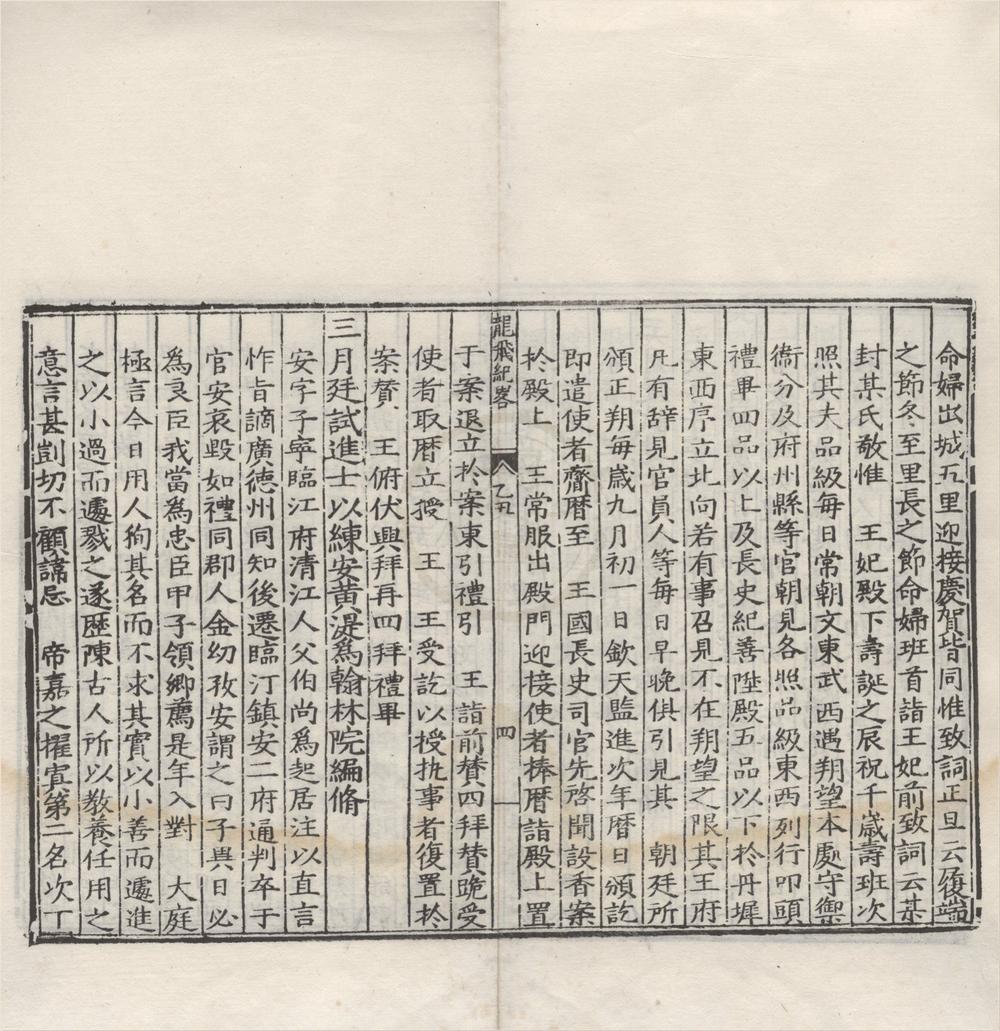 命婦出城五里迎接慶賀皆同惟致詞正旦云履端
之節冬至里長之節命婦班首詣王妃前致詞云某
封某氏敬惟　王妃殿下壽誕之辰祝千歲壽班次
照其夫品級每日常朝文東武西遇朔望本處守禦
衞分及府州縣等官朝見各照品級東西列行叩頭
禮畢四品以上及長史紀善陞殿五品以下於丹墀
東西序立北向若有事召見不在朔望之限其王府
凡有辞見官員人等每日早晚俱引見其　朝廷所
頒正朔每歲九月初一日欽天監進次年曆日頒訖
即遣使者齎曆至　王國長史司官先啓聞設香案
於殿上　王常服出殿門迎接使者捧曆詣殿上置
龍飛紀畧　八　乙丑　四
于案退立於案東引禮引　王詣前賛四拜賛跪受
使者取曆立授　王　王受訖以授执事者復置於
案賛　王俯伏興拜再四拜禮畢
三月廷試進士以練安黄湜爲翰林院編脩
安字子寧臨江府清江人父伯尚爲起居注以直言
忤旨謫廣德州同知後遷臨汀鎮安二府通判卒于
官安哀毀如禮同郡人金幼孜安謂之曰子異日必
爲良臣我當爲忠臣甲子領鄉薦是年入對　大庭
極言今日用人狥其名而不求其實以小善而遽進
之以小過而遽戮之遂歷陳古人所以教養任用之
意言甚剴切不顧諱忌　帝嘉之擢寘第二名次丁